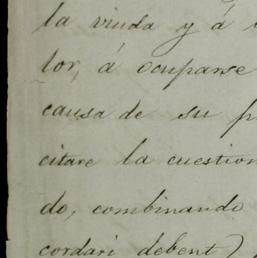 la viuda y á
lor, á ocuparse
causa de su
citare la cuestion
do, combinando
cordari debent)